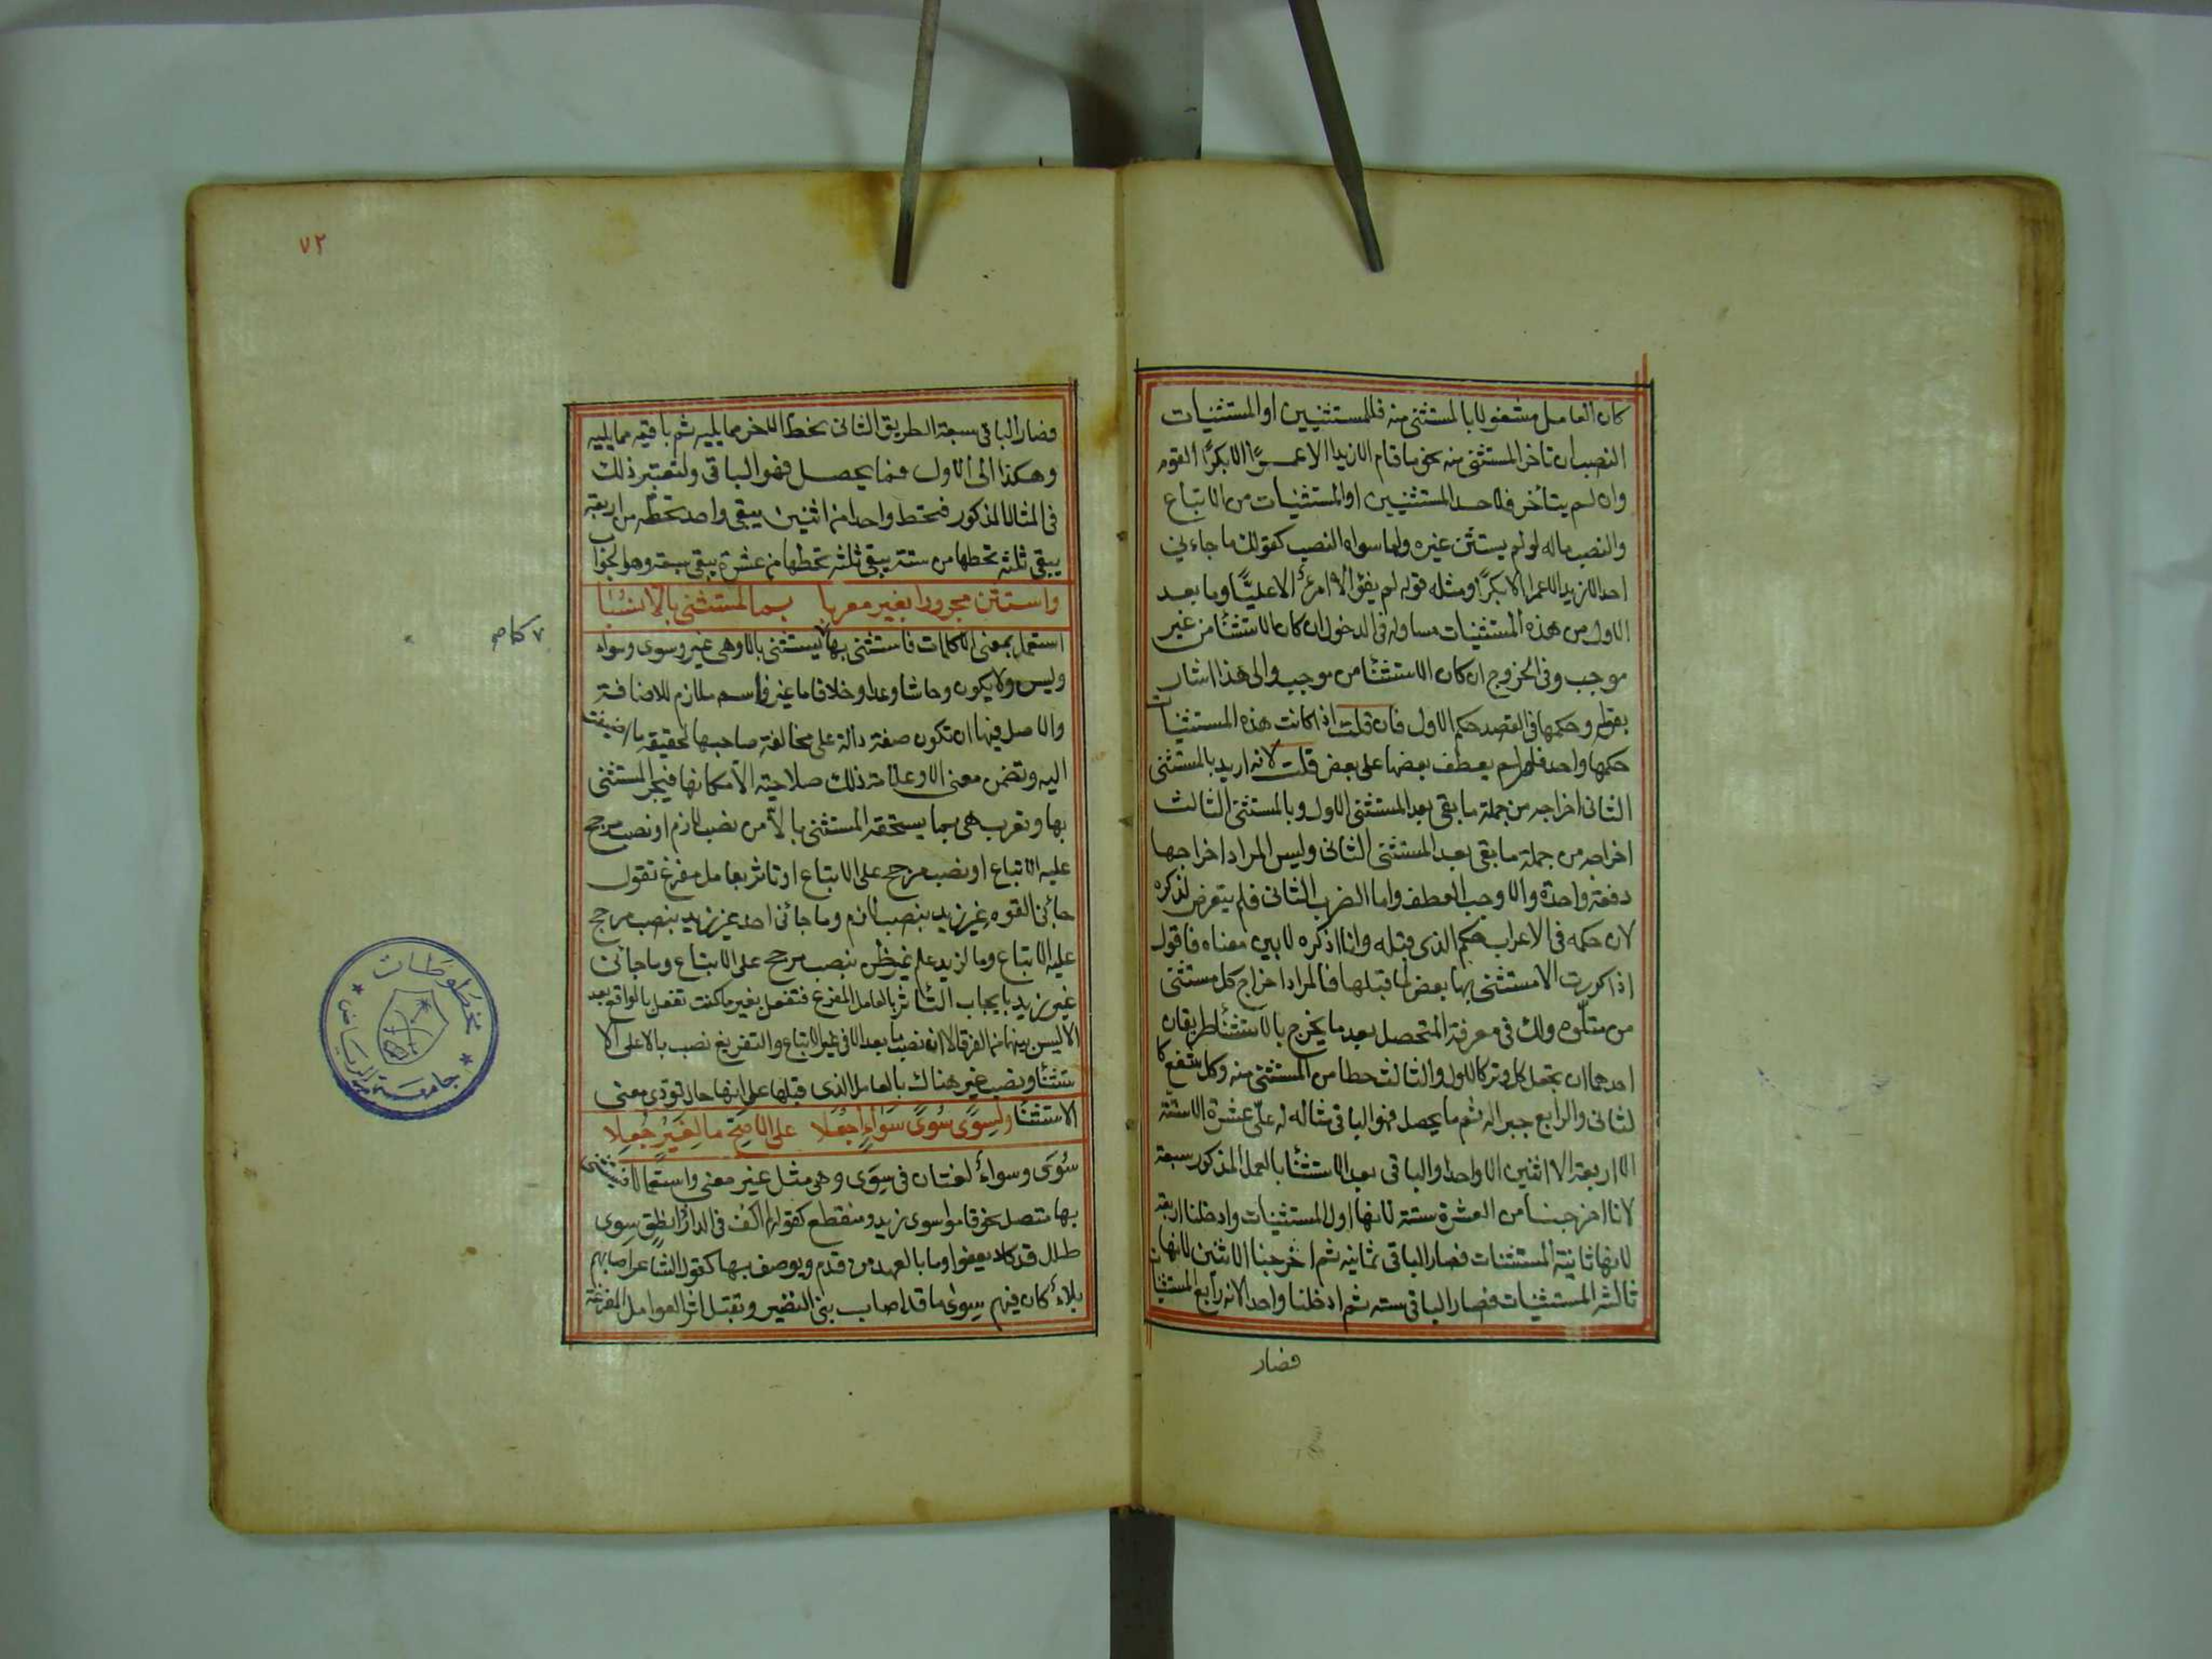 كان العامل مشغولا بالمستثنى منه فللمستثنيين او المستثنيات
النصب ان تاخر المستثنى منه نحو ما قام الا زيدا الا عمرًا الا بكرًا القوم
وان لم يتأخر فلاحد المستثنيين او المستثنيات من الاتباع
والنصب ماله لو لم يستثن غيره ولما سواه النصب كقولك ما جاءني
احد الا زيد الا عمرا الا بكرًا ومثله قوله لم يفوا الا امرؤ الا عليًّا وما بعد
الاول من هذه المستثنيات مساو له في الدخول ان كان الاستثنا من غير
موجب وفي الخروج ان كان الاستثنا من موجب والى هذا اشار
بقوله وحكمها في القصد حكم الاول فان قلت اذا كانت هذه المستثنيات
حكمها واحد فلم لم يعطف بعضها على بعض قلت لانه اريد بالمستثنى
الثاني اخراجه من جملة ما بقى بعد المستثنى الاول وبالمستثنى الثالث
اخراجه من جملة ما بقى بعد المستثنى الثاني وليس المراد اخراجها
دفعة واحدة والا وجب العطف واما الضرب الثاني فلم يتعرض لذكره
لان حكمه في الاعراب حكم الذي قبله وانا اذكره لابين معناه فاقول
اذا كررت الا مستثنى بها بعض لما قبلها فالمراد اخراج كل مستثنى
من متلوه ولك في معرفة المتحصل بعد ما يخرج بالاستثنا طريقان
احدهما ان تجعل كل وتر كالاول والثالث حطا من المستثنى منه وكل شفع كا
لثاني والرابع جبرا له ثم ما يحصل فهو الباقي مثاله له علي عشرة الا ستة
الا اربعة الا اثنين الا واحدا والباقي بعد الاستثنا بالعمل المذكور سبعة
لانا اخرجنا من العشرة ستة لانها اول المستثنيات وادخلنا اربعة
لانها ثانية المستثنيات فصار الباقي ثمانيه ثم اخرجنا الاثنين لانها
ثالثة المستثنيات فصار الباقي سته ثم ادخلنا واحدا لانه رابع المستثنيات
فصار
٧٢
فصار الباقي سبعة الطريق الثاني نحط الاخر مما يليه ثم باقيه مما يليه
وهكذا الى الاول فما يحصل فهو الباقي ولتعتبر ذلك
في المثال المذكور فتحط واحدا من اثنين يبقى واحد تحطه من اربعة
يبقى ثلثه تحطها من ستة يبقى ثلثه تحطها من عشرة يبقى سبعة وهو الجواب
واستثن مجرورا بغير معربا بما لمستثنى بالا نسبا
استعمل بمعنى الا كلمات فاستثنى بها كما يستثنى بالا وهي غير وسوى وسواء
وليس ولا يكون وحاشا وعدا وخلا فاما غير فاسم ملازم للاضافة
والاصل فيها ان تكون صفة دالة على مخالفة صاحبها لحقيقة ما اضيفت
اليه وتضمن معنى الا وعلامة ذلك صلاحية الا مكانها فيجر المستثنى
بها وتعرب هي بما يستحقه المستثنى بالا من نصب لازم او نصب مرجح
عليه الاتباع او نصب مرجح على الاتباع او تاثر بعامل مفرغ تقول
جائني القوم غير زيد بنصب لازم وما جائني احد غير زيد بنصب مرجح
عليه الاتباع وما لزيد علم غير ظن بنصب مرجح على الاتباع وما جائني
غير زيد بايجاب التأثر بالعامل المفرغ فتفعل بغير ما كنت تفعل بالواقع بعد
الا ليس بينهما من الفرق الا ان نصب ما بعد الا في غير الاتباع والتفريغ نصب بالا على الا
ستثنا ونصب غير هناك بالعامل الذي قبلها على انها حال تؤدي معنى
الاستثنا ولسوى سوى سواء اجعلا على الاصح ما لغير جعلا
سوى وسواء لغتان في سوى وهي مثل غير معنى واستعمالا فيستثنى
بها متصل نحو قاموا سوى زيد ومنقطع كقوله لم الف في الدار ذا نطق سوى
طلل قد كاد يعفو وما بالعهد من قدم ويوصف بها كقول الشاعر اصابهم
بلاء كان فيهم سوى ما قد اصاب بني النضير وتقبل اثر العوامل المفرغة
مخطوطات
جامعة الرياض